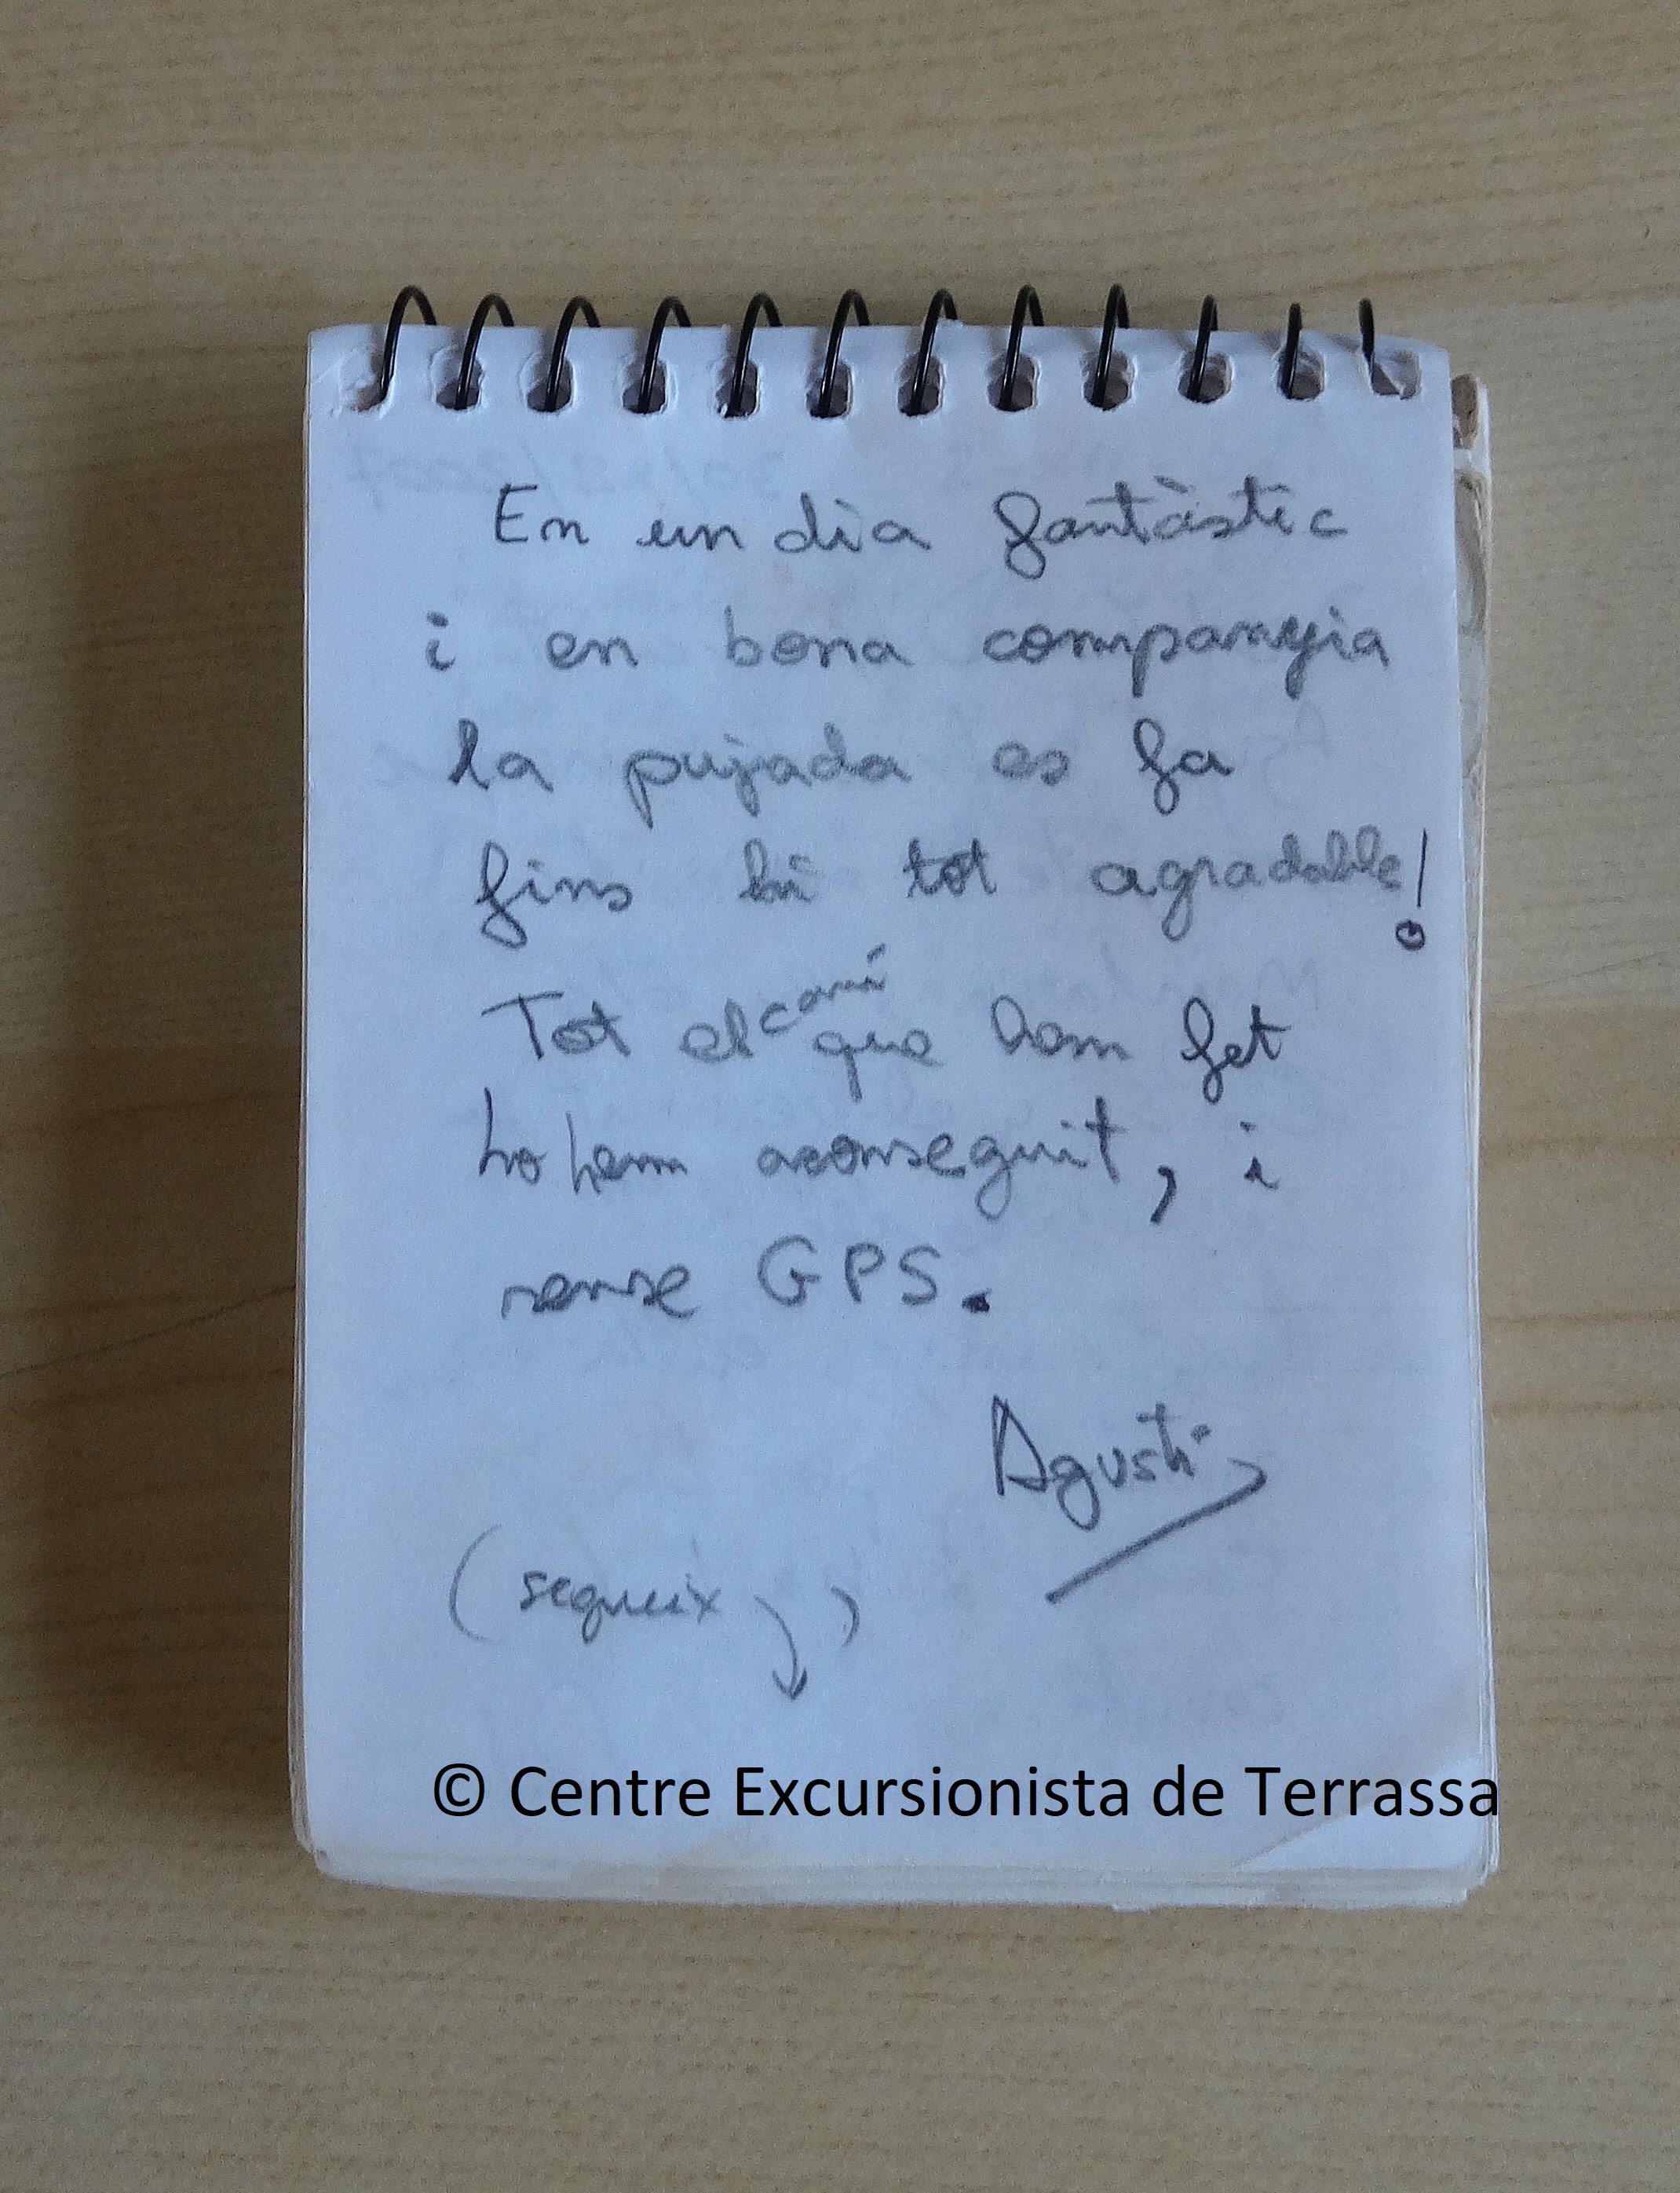 En un dia fantàstic
i en bona companyia
la pujada es fa
fins hi tot agradable!
Tot el camí que hem fet
ho hem aconseguit, i
sense GPS.
Agustí
(segueix ↓)
© Centre Excursionista de Terrassa